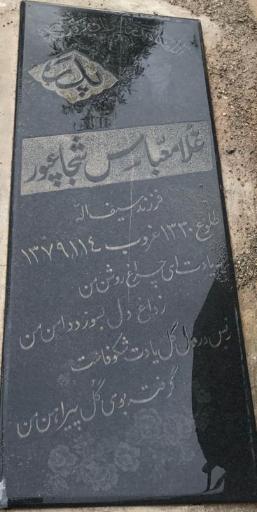 پدر
غلامعباس شجاعپور
فرزند سیف اله
طلوع ۱۳۳۰ غروب ۱۳۷۹،۱،۱۴
ای چراغ روشن من
ز داغت دل بسوزد دامن من
بس در دل گل یادت شکوفاست
گرفته بوی گل پیراهن من